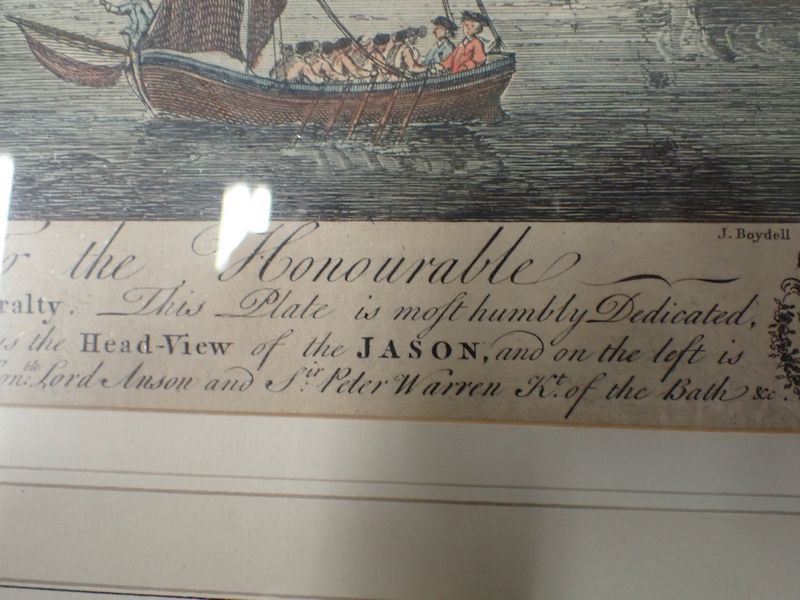 J. Boydell
the Honourable
ralty. This Plate is most humbly Dedicated,
is the Head-View of the JASON, and on the left is
on:ble Lord Anson and Sir. Peter Warren Kt. of the Bath &c.